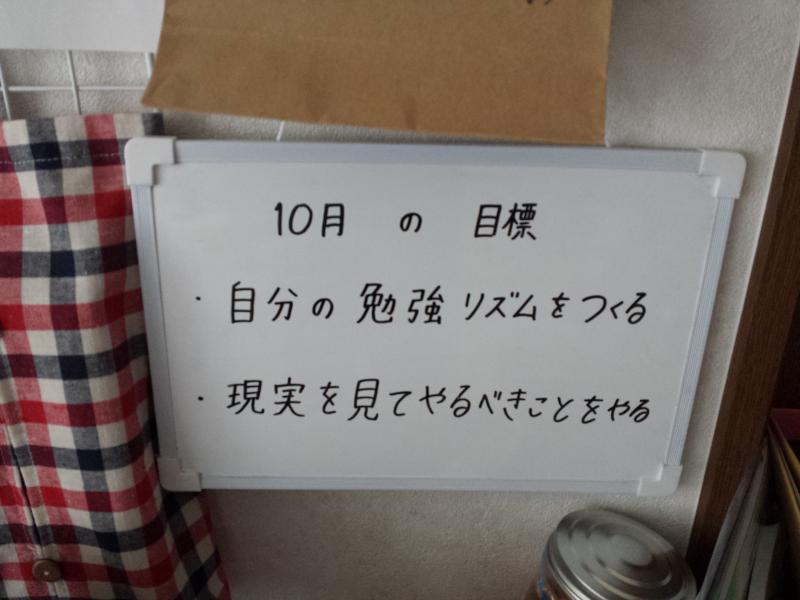 10月 の 目標
・自分の勉強リズムをつくる
・現実を見てやるべきことをやる